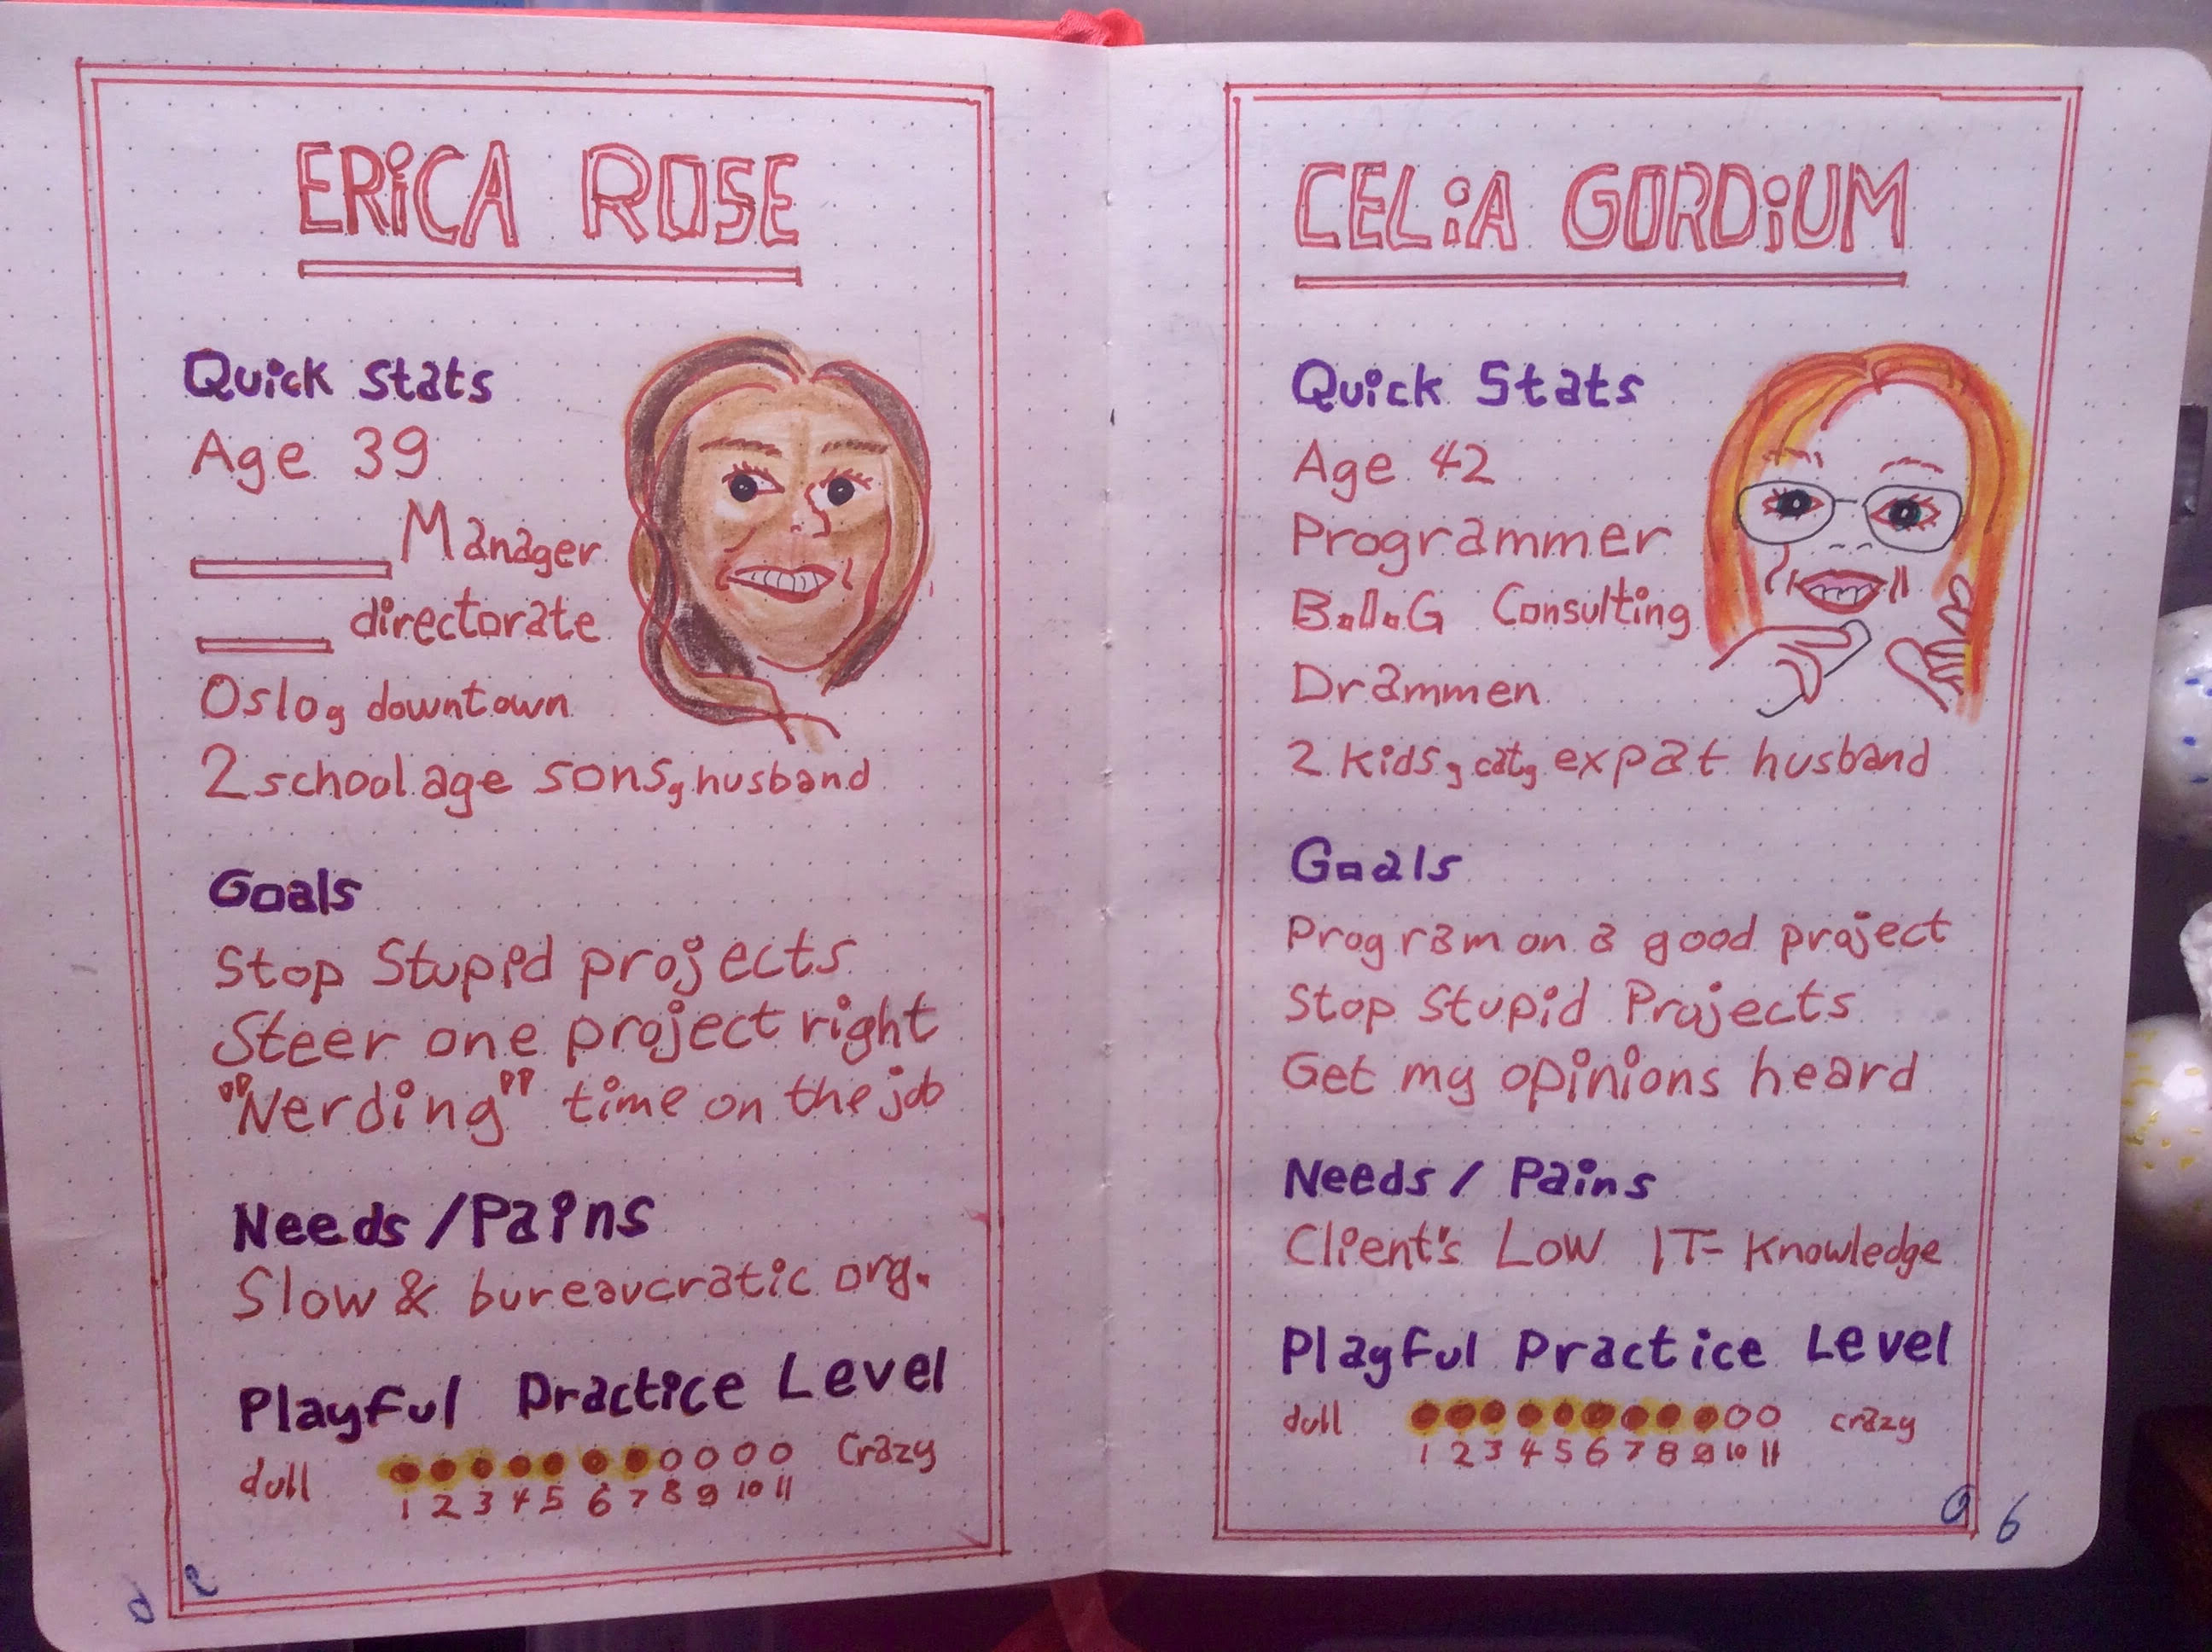 ERiCA ROSE
Quick Stats
Age 39
Manager
directorate
Oslo, downtown
2 school age sons, husband
Goals
Stop Stupid projects
Steer one project right
"Nerding" time on the job
Needs/Pains
Slow & bureaucratic org.
Playful Practice Level
dull Crazy
1 2 3 4 5 6 7 8 9 10 11
CELiA GORDiUM
Quick Stats
Age 42
Programmer
B.I.G Consulting
Drammen
2 kids, cat, expat husband
Goals
Program on a good project
Stop Stupid Projects
Get my opinions heard
Needs / Pains
Client's Low IT- Knowledge
Playful Practice Level
dull crazy
1 2 3 4 5 6 7 8 9 10 11